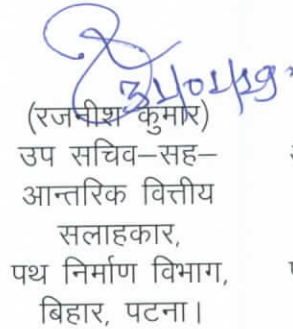 31/01/19
(रजनीश कुमार)
उप सचिव–सह–
आन्तरिक वित्तीय
सलाहकार,
पथ निर्माण विभाग,
बिहार, पटना।